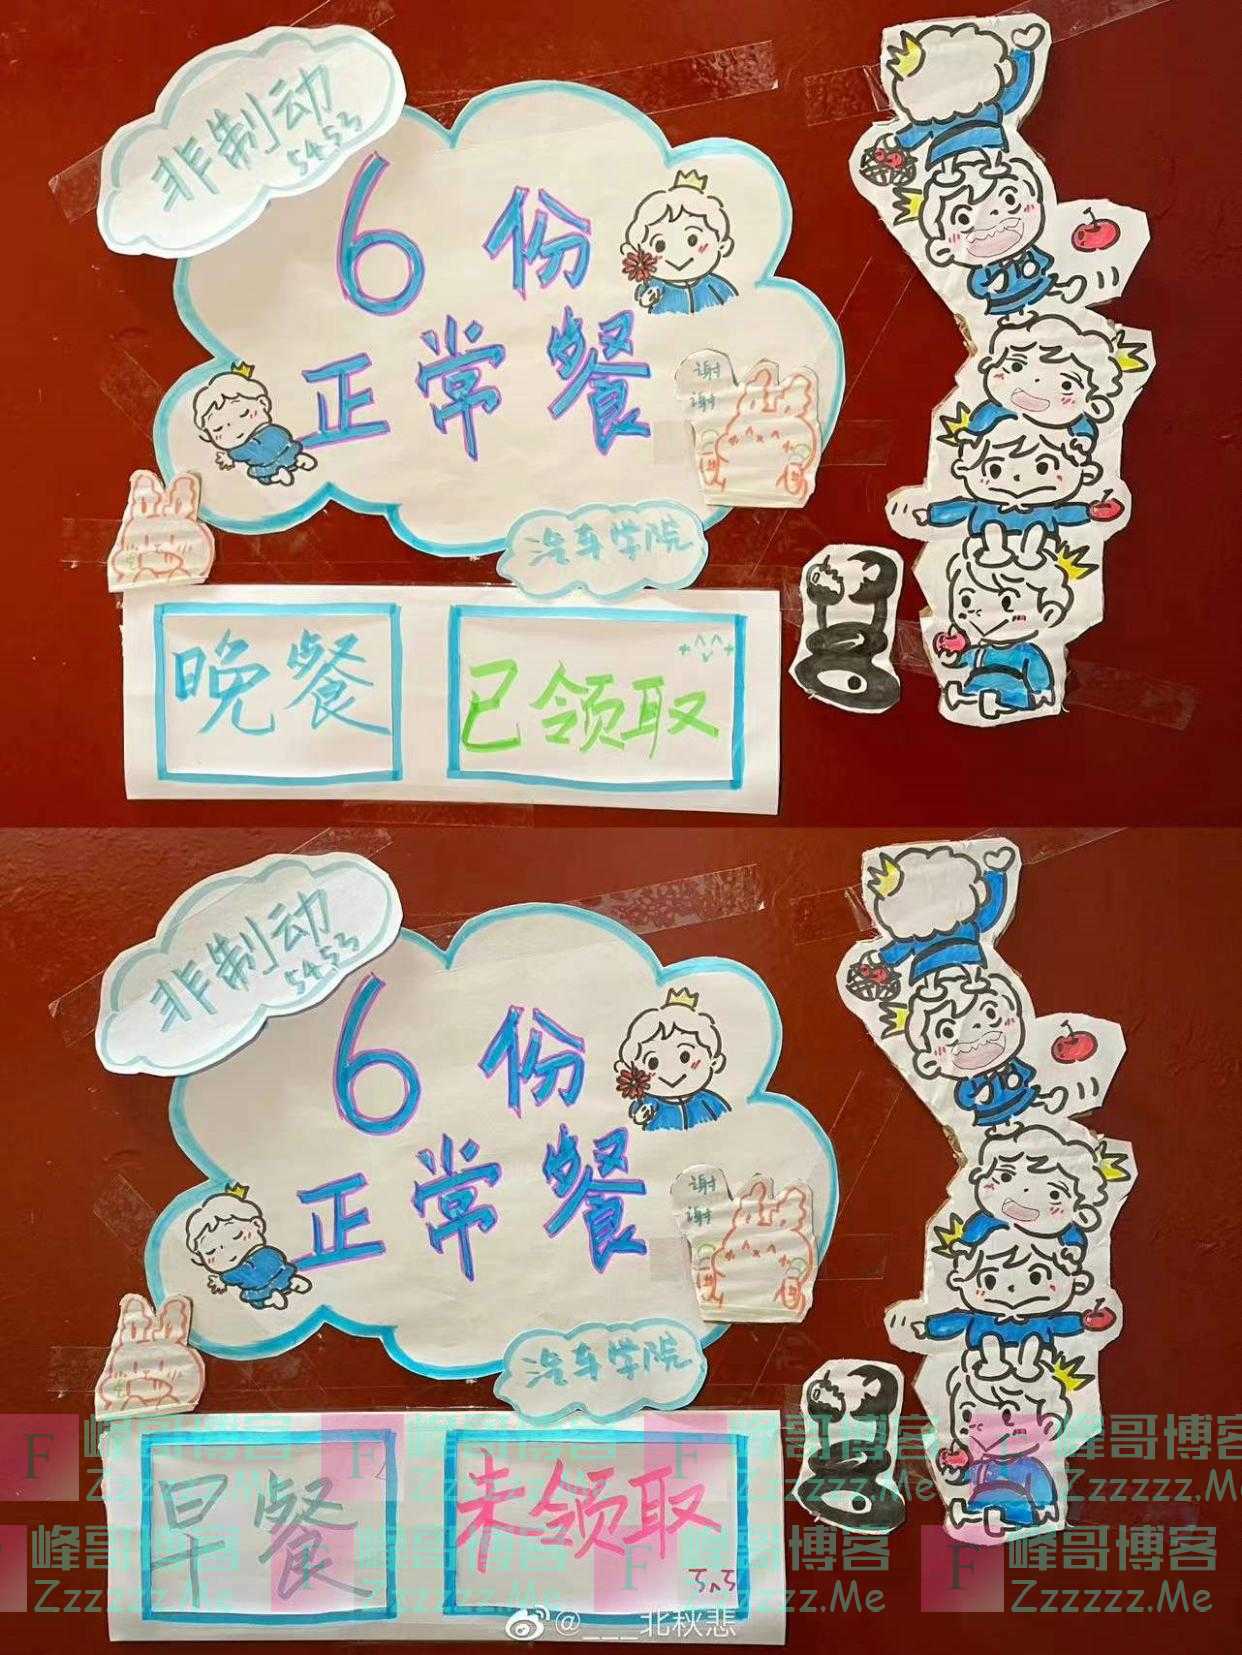 非制动
5453
6份
正常餐
谢
谢
汽车学院
晚餐
已领取
非制动
5453
6份
正常餐
谢
谢
汽车学院
早餐
未领取
F 峰哥博客
Zzzzzz.Me
F 峰哥博客
Zzzzzz.Me
@___北秋悲